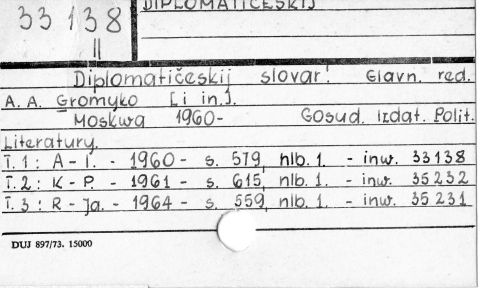 DIPLOMATIČESKIJ
33 138
II
Diplomatičeskij slovar'. Glavn. red.
A. A. Gromyko [i in.].
Moskwa 1960- Gosud. Izdat. Polit.
Literatury.
T. 1 : A - I. - 1960 - s. 579, nlb. 1. - inw. 33138
T. 2 : K - P. - 1961 - s. 615, nlb. 1. - inw. 35232
T. 3 : R - Ja. - 1964 - s. 559, nlb. 1. - inw. 35231
DUJ 897/73. 15000